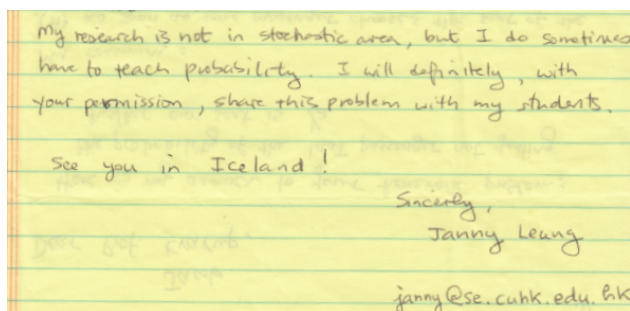 My research is not in stochastic area, but I do sometimes
have to teach probability. I will definitely, with
your permission, share this problem with my students.
See you in Iceland!
Sincerly,
Janny Leung
janny@se.cuhk.edu.hk